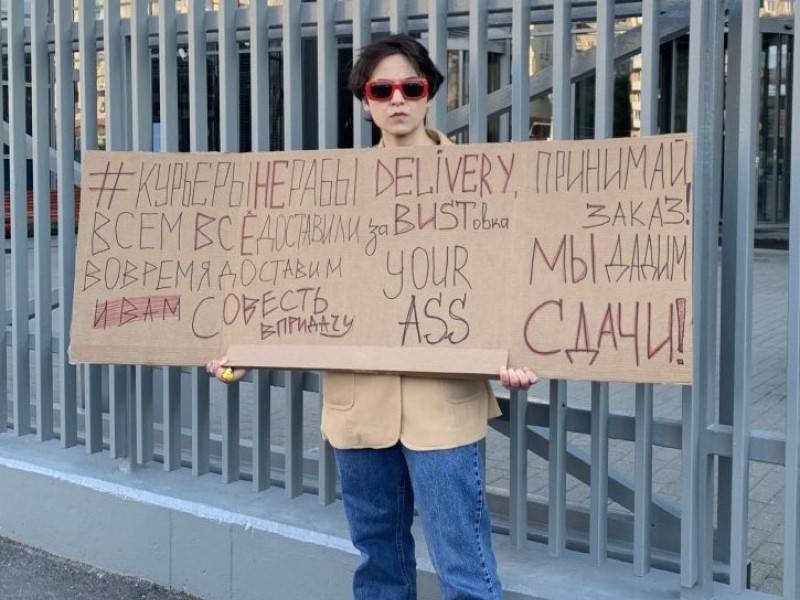 #КУРЬЕРЫНЕРАБЫ
ВСЕМ ВСЁ ДОСТАВИЛИ
ВОВРЕМЯ ДОСТАВИМ
И ВАМ СОВЕСТЬ
ВПРИДАЧУ
DELIVERY,
за BUSTовка
YOUR
ASS
ПРИНИМАЙ
ЗАКАЗ!
МЫ ДАДИМ
СДАЧИ!